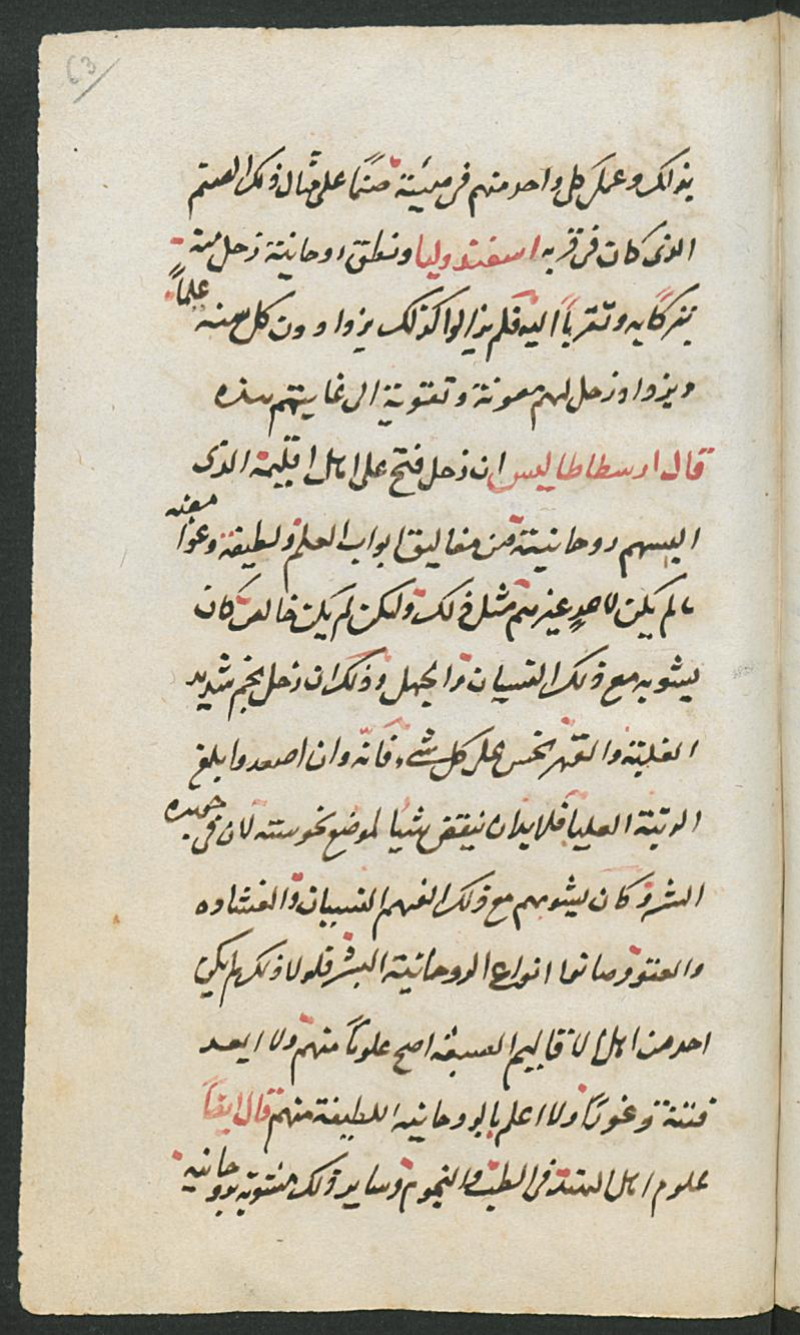 63
بذلك وعمل كل واحد منهم فى مدينة صنمًا على مثال ذلك الصنم
الذى كان فى قربه اسفندوليا ونطق روحانية زحل منه
تبركًا به وتقربًا اليه فلم يزالوا كذلك يزدادون كل سنه علمًا
ويزداد زحل لهم معونة وتقوية الى غايتهم هذه
قال ارسطاطاليس ان زحل فتح على اهل اقليمه الذى
البسهم روحانيته من مغاليق ابواب العلم ولطيفه وغوامضه
مالم يكن لاحد غيرهم مثل ذلك ولكن لم يكن خالص كان
يشوبه مع ذلك النسيان والجهل وذلك ان زحل نجم شديد
الغلبة والقهر نحس على كل شىء فانّه وان اصعد وابلغ
الرتبة العليا فلا بد ان ينقض شيئا لموضع نحوسته لان فى
الشر وكان يشوبهم مع ذلك الفهم النسيان والغشاوه
والعتو وصانعا انواع الروحانية البشر فلولا ذلك لم يكن
احد من اهل الاقاليم السبعه اصح علومًا منهم ولا ابعد
فتنة وغورًا ولا اعلم بالروحانيه اللطيفة منهم قال ايضًا
علوم اهل الهند فى الطب والنجوم وساير ذلك بروحانيه